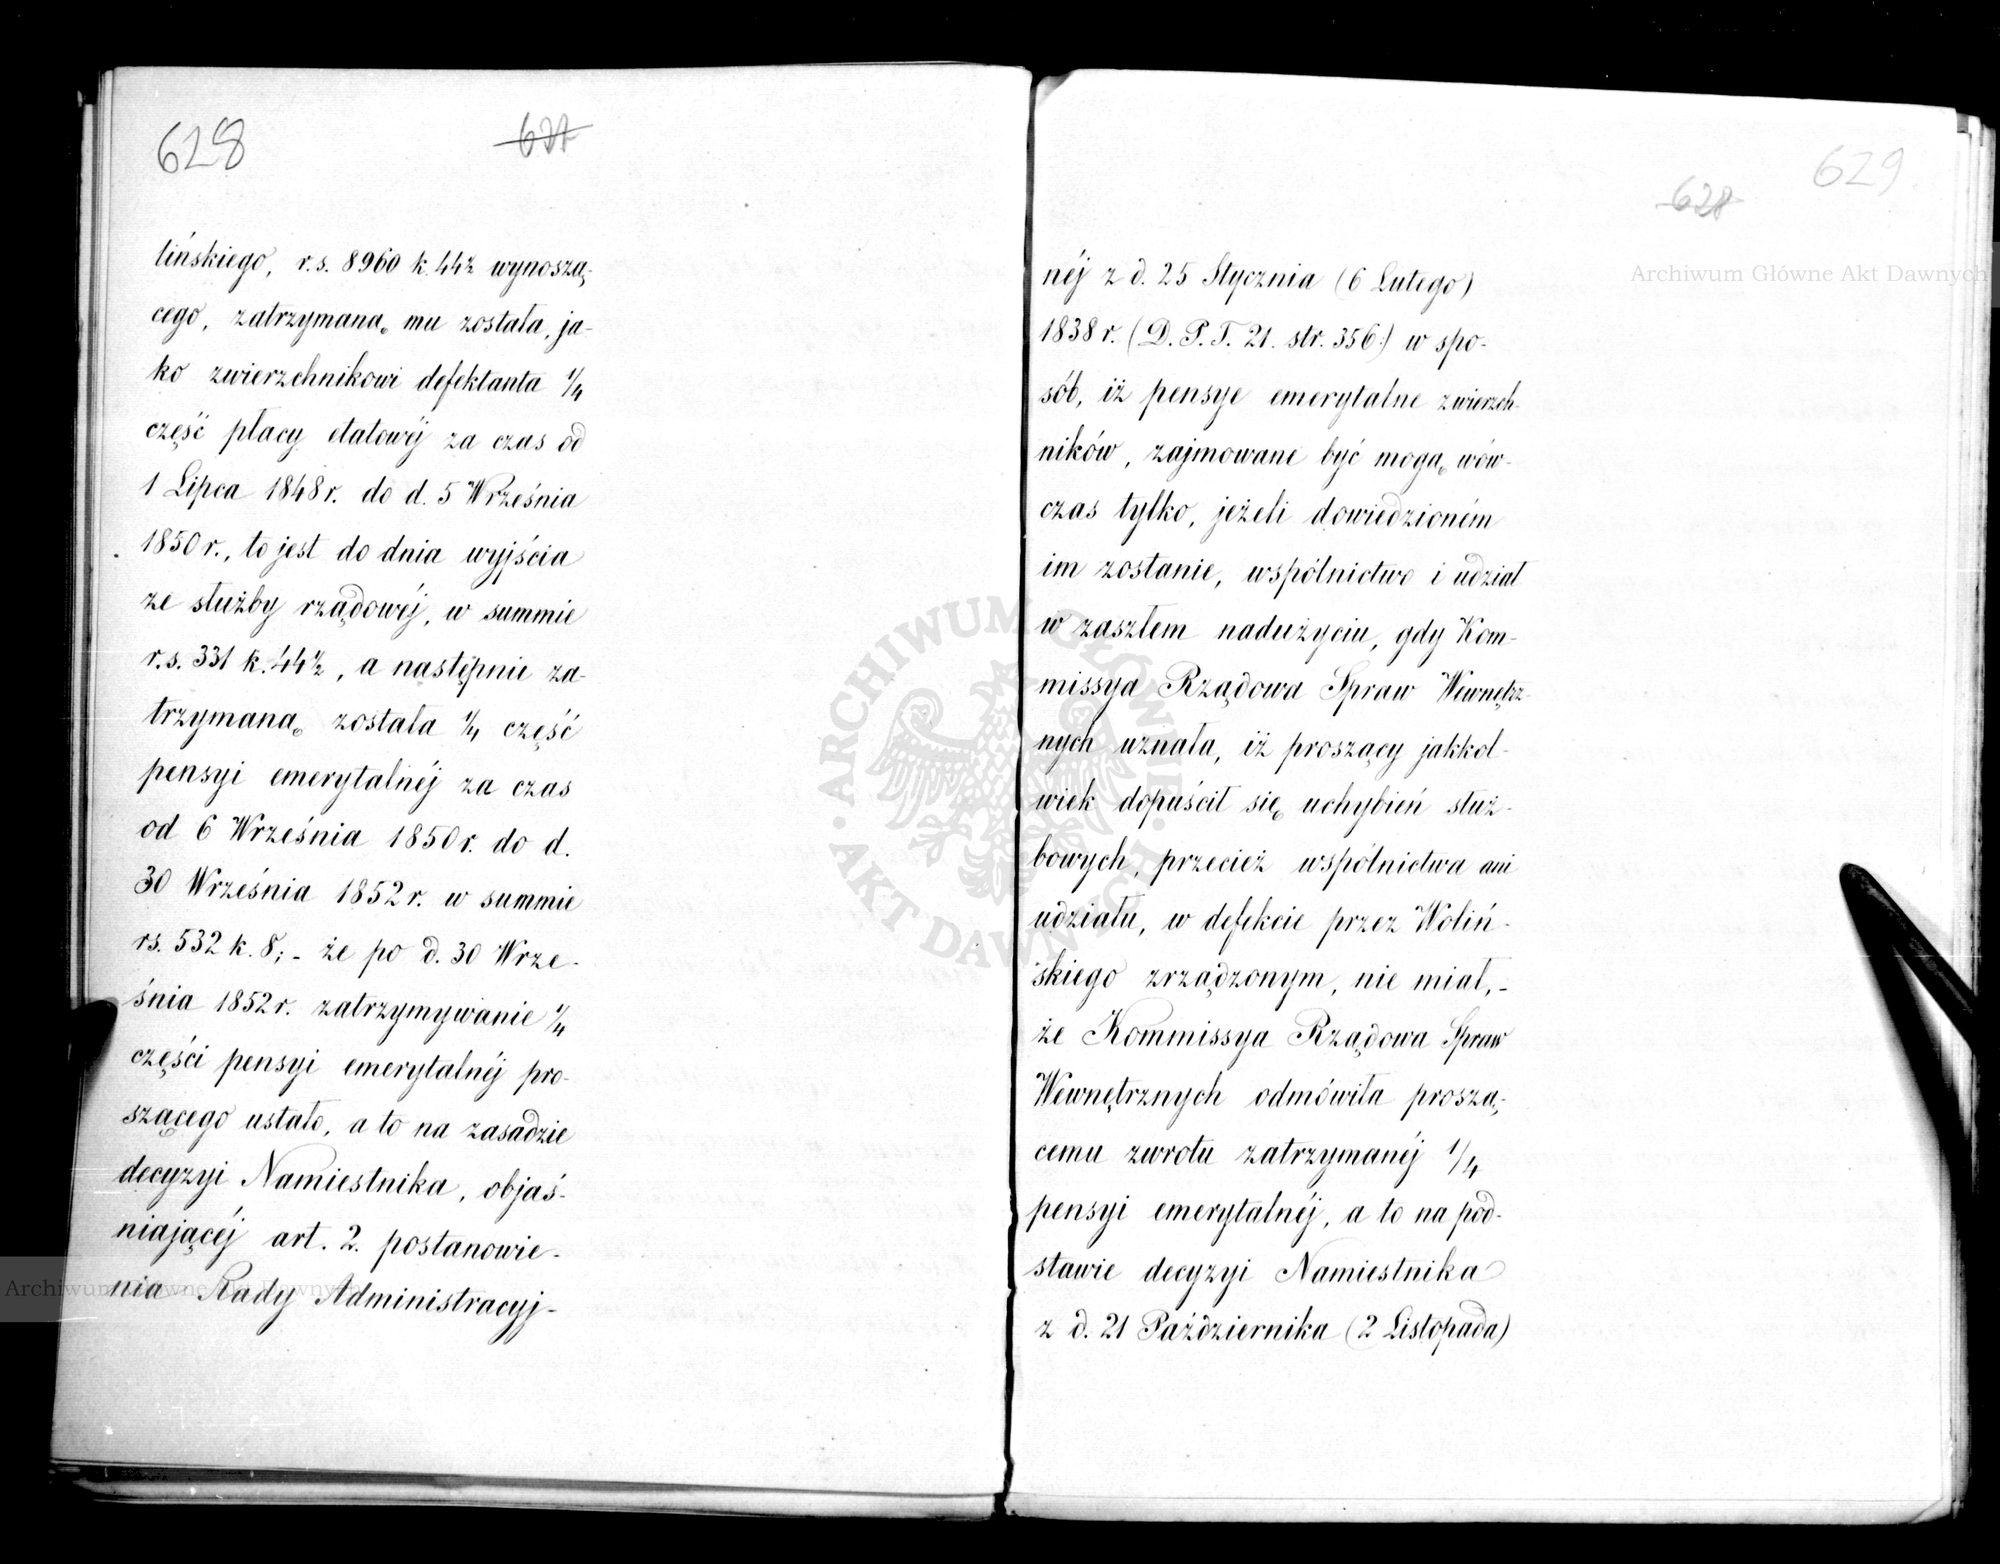 628
627
lińskiego, r.s. 8960 k. 44½ wynoszą-
cego, zatrzymaną mu została, ja-
ko zwierzchnikowi defektanta 1/4
część płacy etatowéj za czas od
1 Lipca 1848 r. do d. 5 Września
1850 r., to jest do dnia wyjścia
ze służby rządowéj, w summie
r.s. 331 k. 44½, a następnie za-
trzymaną została 1/4 część
pensyi emerytalnéj za czas
od 6 Września 1850 r. do d.
30 Września 1852 r. w summie
rs. 532 k. 8; - że po d. 30 Wrze-
śnia 1852 r. zatrzymywanie 1/4
części pensyi emerytalnéj pro-
szącego ustało, a to na zasadzie
decyzyi Namiestnika, objaś-
niającéj art. 2. postanowie-
nia Rady Administracyj-
629
628
néj z d. 25 Stycznia (6 Lutego)
1838 r. (D. P. T. 21. str. 356.) w spo-
sób, iż pensye emerytalne zwierzch-
ników, zajmowane być mogą wów-
czas tylko, jeżeli dowiedzioném
im zostanie, wspólnictwo i udział
w zaszłem nadużyciu, gdy Kom-
missya Rządowa Spraw Wewnętrz-
nych uznała, iż proszący jakkol-
wiek dopuścił się uchybień służ-
bowych, przecież wspólnictwa ani
udziału, w defekcie przez Woliń-
skiego zrządzonym, nie miał, -
że Kommissya Rządowa Spraw
Wewnętrznych odmówiła proszą-
cemu zwrotu zatrzymanéj 1/4
pensyi emerytalnéj, a to na pod-
stawie decyzyi Namiestnika
z d. 21 Października (2 Listopada)
Archiwum Główne Akt Dawnych
Archiwum Główne Akt Dawnych
ARCHIWUM GŁÓWNE · AKT DAWNYCH ·